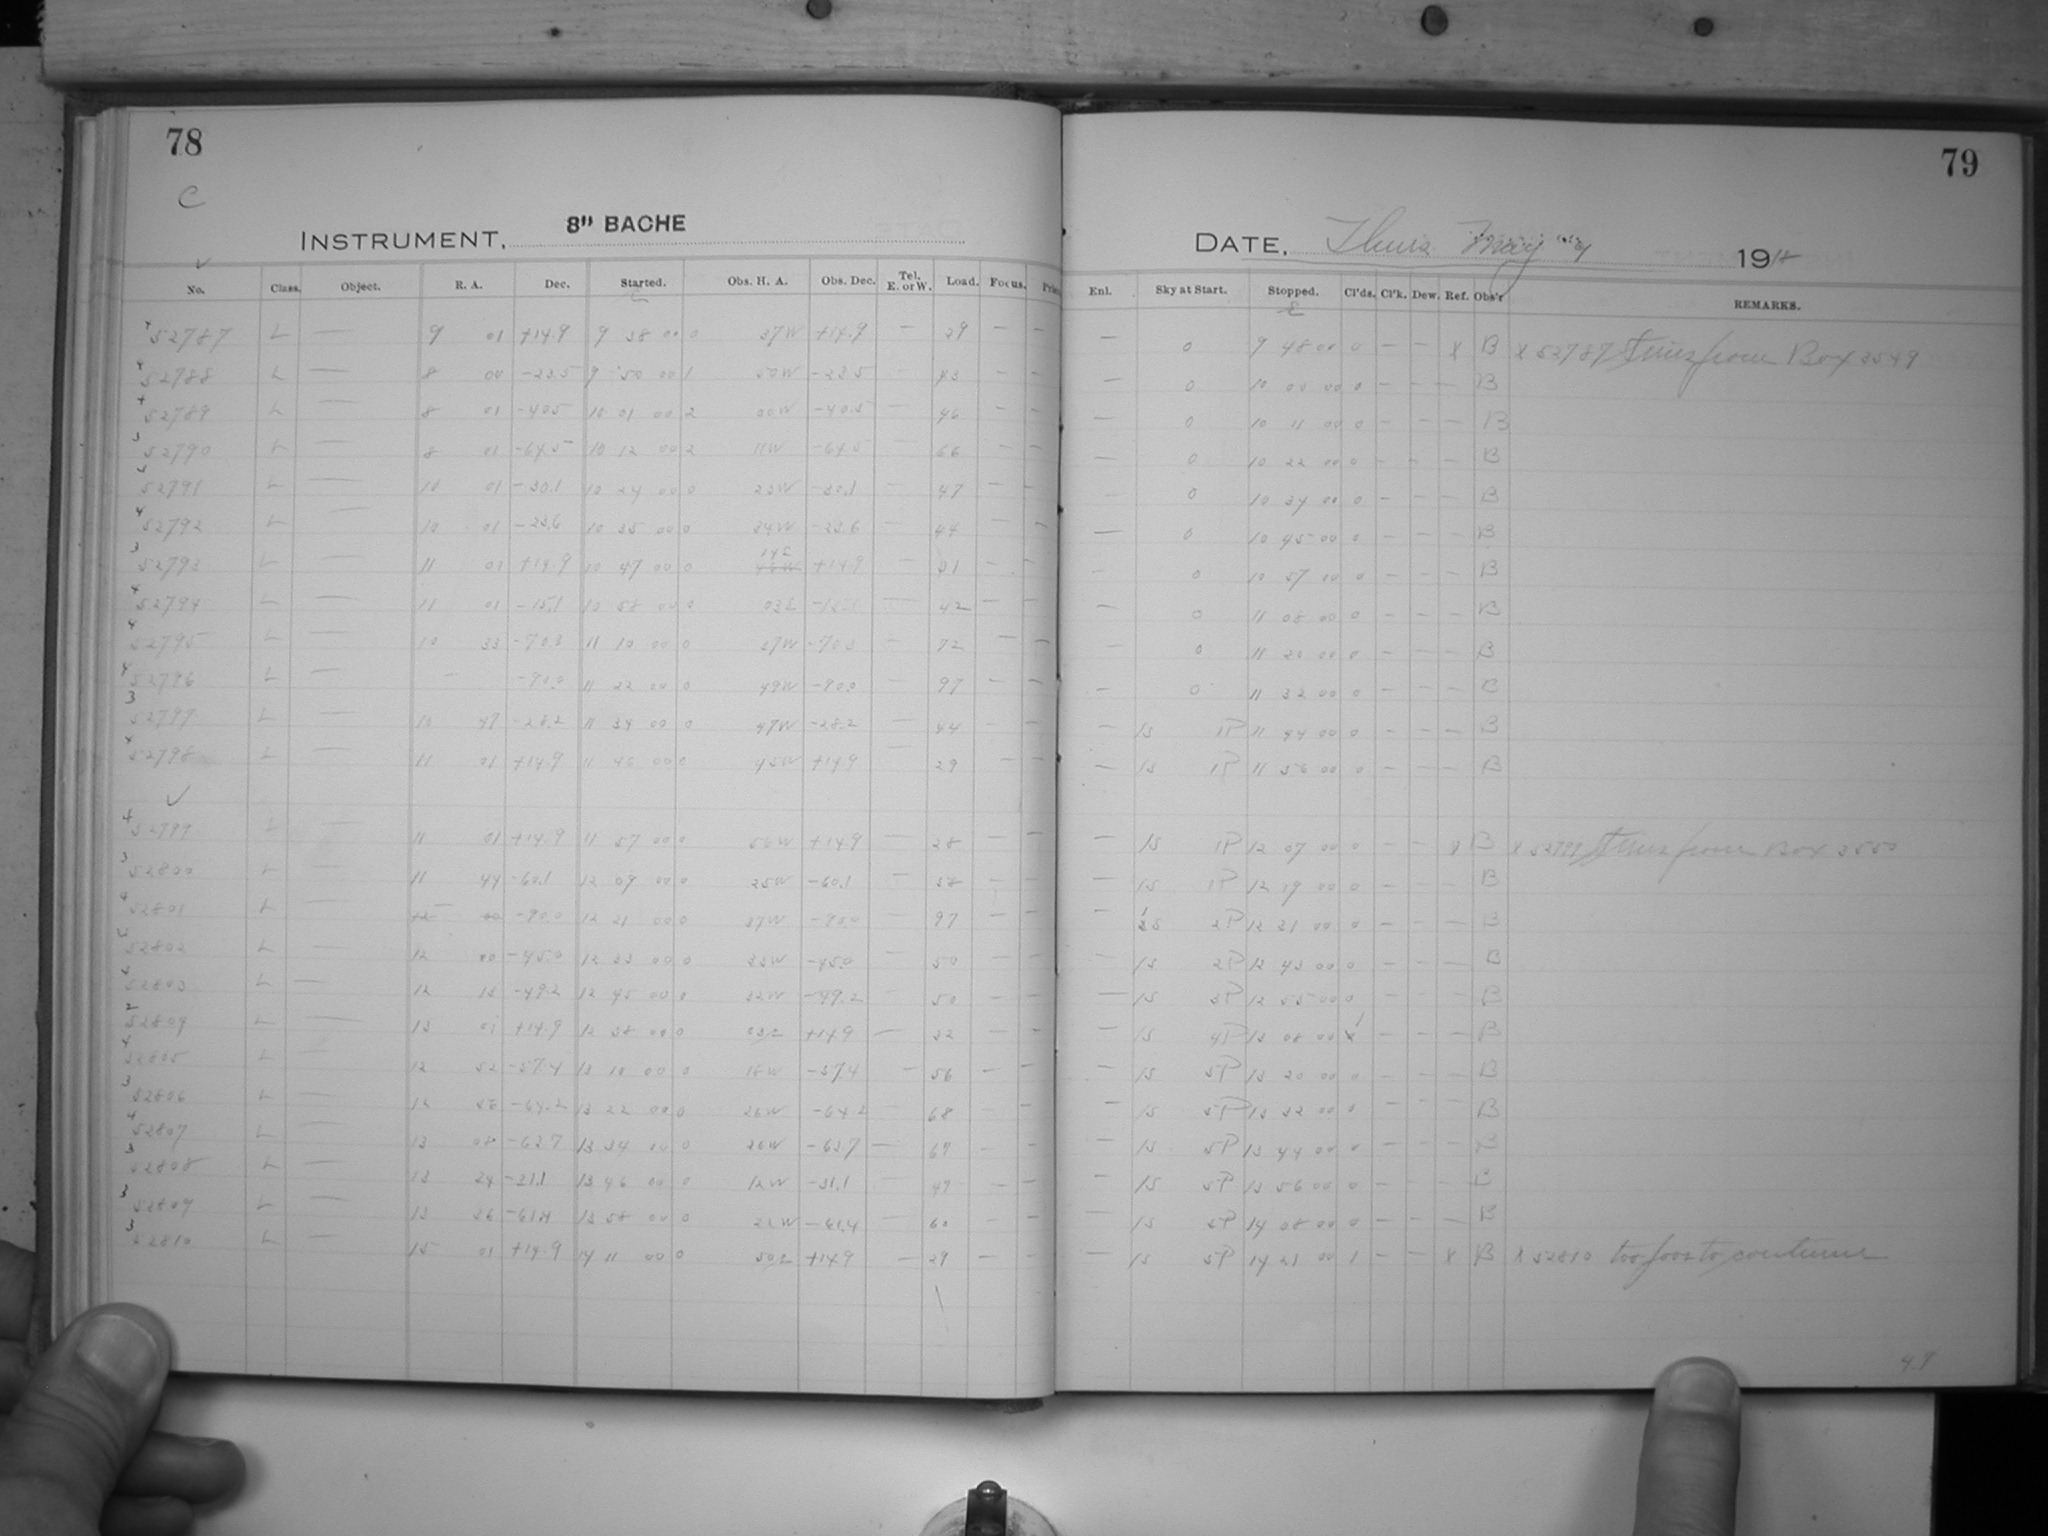 78
C
INSTRUMENT, 8" BACHE
No. Class. Object. R. A. Dec. Started. Obs. H. A. Obs. Dec. Tel. E. or W. Load. Focus.
52787 L — 9 01 +14.9 9 38 00 0 37W +14.9 — 29 — —
52788 L — 8 00 -23.5 9 50 00 1 50W -23.5 — 43 — —
52789 L — 8 01 -40.5 10 01 00 2 00W -40.5 — 46 — —
52790 L — 8 01 -64.5 10 12 00 2 11W -64.5 — 66 — —
52791 L — 10 01 -30.1 10 24 00 0 23W -30.1 — 47 — —
52792 L — 10 01 -23.6 10 35 00 0 34W -23.6 — 44 — —
52793 L — 11 01 +14.9 10 47 00 0 14E +14.9 — 31 — —
52794 L — 11 01 -15.1 10 58 00 0 03E -15.1 — 42 — —
52795 L — 10 33 -70.3 11 10 00 0 37W -70.3 — 72 — —
52796 L — — -90.0 11 22 00 0 49W -90.0 — 97 — —
52797 L — 10 47 -28.2 11 34 00 0 47W -28.2 — 44 — —
52798 L — 11 01 +14.9 11 46 00 0 45W +14.9 29 — —
52799 L — 11 01 +14.9 11 57 00 0 56W +14.9 — 28 — —
52800 L — 11 44 -60.1 12 09 00 0 25W -60.1 — 58 — —
52801 L — -90.0 12 21 00 0 37W -90.0 — 97 — —
52802 L — 12 00 -45.0 12 33 00 0 33W -45.0 — 50 — —
52803 L — 12 13 -49.2 12 45 00 0 32W -49.2 — 50 — —
52804 L — 13 01 +14.9 12 58 00 0 03E +14.9 — 32 — —
52805 L — 12 52 -57.4 13 10 00 0 18W -57.4 — 56 — —
52806 L — 12 56 -64.2 13 22 00 0 26W -64.2 — 68 — —
52807 L — 13 08 -63.7 13 34 00 0 26W -63.7 — 67 — —
52808 L — 13 34 -31.1 13 46 00 0 12W -31.1 — 47 — —
52809 L — 13 36 -61.4 13 58 00 0 22W -61.4 — 60 — —
52810 L — 15 01 +14.9 14 11 00 0 50E +14.9 — 29 — —
79
DATE, Thurs May 9 1918
Enl. Sky at Start. Stopped. Cl'ds. Cl'k. Dew. Ref. Obs'r REMARKS.
— 0 9 48 00 0 — — x B x 52787 from Box 3549
— 0 10 00 00 0 — — — B
— 0 10 11 00 0 — — — B
— 0 10 22 00 0 — — — B
— 0 10 34 00 0 — — — B
— 0 10 45 00 0 — — — B
— 0 10 57 00 0 — — — B
— 0 11 08 00 0 — — — B
— 0 11 20 00 0 — — — B
— 0 11 32 00 0 — — — B
— 15 1P 11 44 00 0 — — — B
— 15 1P 11 56 00 0 — — — B
— 15 1P 12 07 00 0 — — x B x 52799 from Box 3550
— 15 1P 12 19 00 0 — — — B
— 15 2P 12 31 00 0 — — — B
— 15 2P 12 43 00 0 — — — B
— 15 3P 12 55 00 0 — — — B
— 15 4P 13 08 00 1 — — — B
— 15 5P 13 20 00 0 — — — B
— 15 5P 13 32 00 0 — — — B
— 15 5P 13 44 00 0 — — — B
— 15 5P 13 56 00 0 — — — B
— 15 5P 14 08 00 0 — — — B
— 15 5P 14 21 00 1 — — x B x 52810 too poor to continue